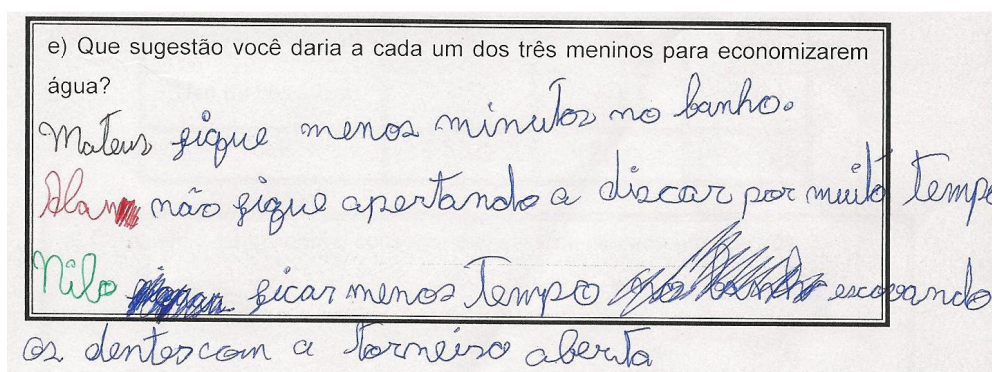 e) Que sugestão você daria a cada um dos três meninos para economizarem
água?
Mateus fique menos minutos no banho.
Alan não fique apertando a discar por muito tempo
Nilo ficar menos Tempo escovando
os dentes com a torneiro aberta